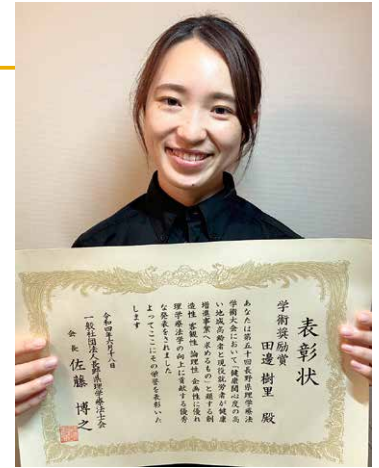 表彰状
学術奨励賞
田邊 樹里 殿
あなたは第五十回長野県理学療法
学術大会において「健康関心度の高
い地域高齢者と現役就労者が健康
増進事業へ求めるもの」と題する創
造性 客観性 論理性 企画性に優れ
理学療法学の向上に貢献する優秀
な発表をされました
よってここにその学誉を表彰いた
します
令和四年六月十八日
一般社団法人長野県理学療法士会
会長 佐藤 博之